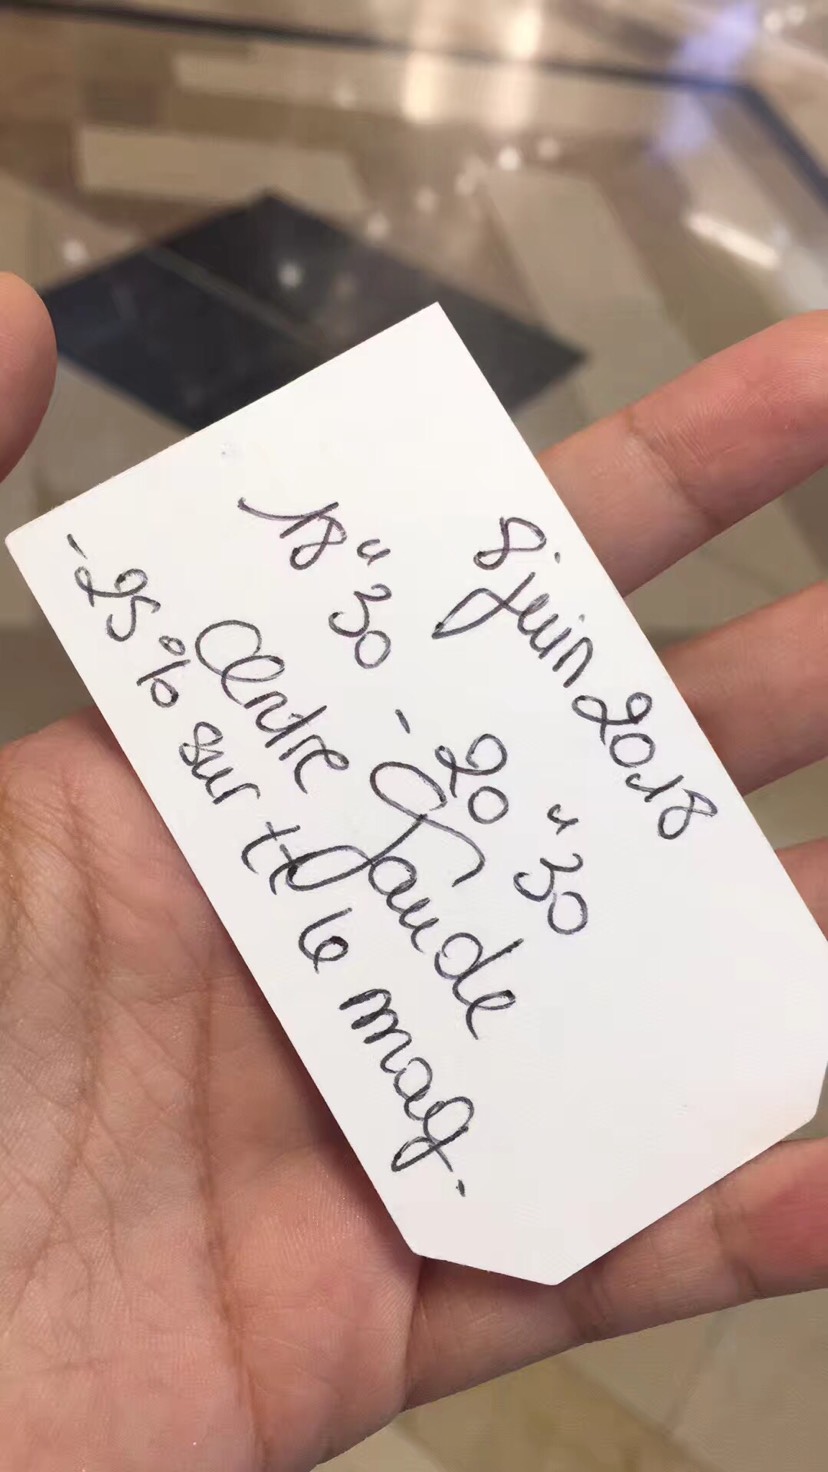 8 juin 2018
18h30 - 20h30
Centre Jaude
-25% sur tt le mag.